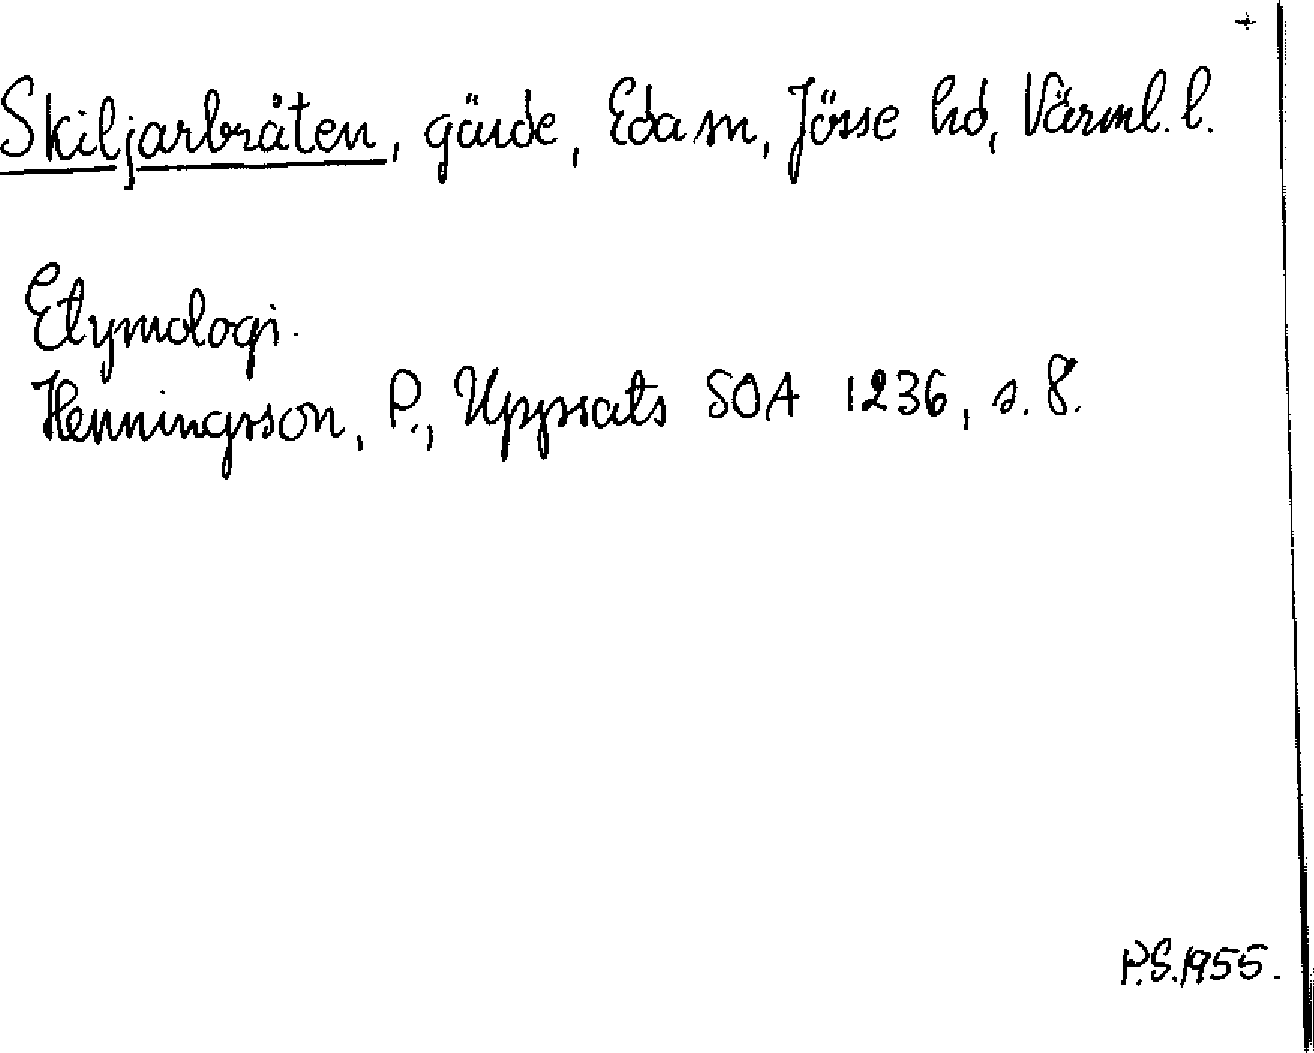 Skiljarbråten, gärde, Eda sn, Jösse hd, Värml. l.
Etymologi.
Henningsson, P., Uppsats SOA 1236, s. 8.
P.S. 1955.